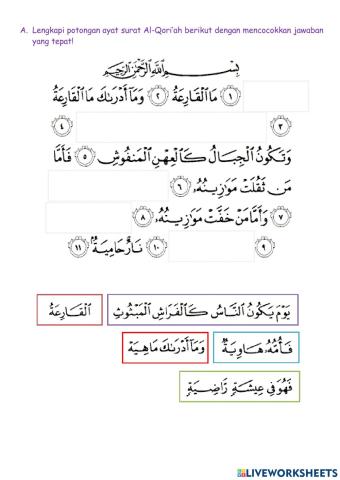 A. Lengkapi potongan ayat surat Al-Qori'ah berikut dengan mencocokkan jawaban
yang tepat!
بِسْمِ اللَّهِ الرَّحْمَٰنِ الرَّحِيمِ
١ مَا الْقَارِعَةُ ٢ وَمَا أَدْرَىٰكَ مَا الْقَارِعَةُ
٣ ٤
وَتَكُونُ الْجِبَالُ كَالْعِهْنِ الْمَنفُوشِ ٥ فَأَمَّا
مَن ثَقُلَتْ مَوَازِينُهُۥ ٦
٧ وَأَمَّا مَنْ خَفَّتْ مَوَازِينُهُۥ ٨
٩ ١٠ نَارٌ حَامِيَةٌ ١١
يَوْمَ يَكُونُ النَّاسُ كَالْفَرَاشِ الْمَبْثُوثِ الْقَارِعَةُ
فَأُمُّهُۥ هَاوِيَةٌ وَمَا أَدْرَىٰكَ مَا هِيَهْ
فَهُوَ فِي عِيشَةٍ رَّاضِيَةٍ
LIVEWORKSHEETS